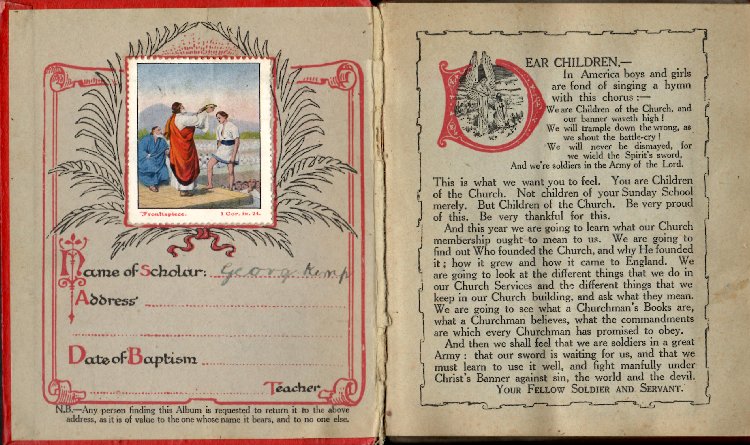 Frontispiece. 1 Cor. ix. 24.
Name of Scholar: George Kemp
Address
Date of Baptism
Teacher
N.B.—Any person finding this Album is requested to return it to the above
address, as it is of value to the one whose name it bears, and to no one else.
DEAR CHILDREN,—
In America boys and girls
are fond of singing a hymn
with this chorus :—
We are Children of the Church, and
our banner waveth high !
We will trample down the wrong, as
we shout the battle-cry !
We will never be dismayed, for
we wield the Spirit's sword.
And we're soldiers in the Army of the Lord.
This is what we want you to feel. You are Children
of the Church. Not children of your Sunday School
merely. But Children of the Church. Be very proud
of this. Be very thankful for this.
And this year we are going to learn what our Church
membership ought to mean to us. We are going to
find out Who founded the Church, and why He founded
it ; how it grew and how it came to England. We
are going to look at the different things that we do in
our Church Services and the different things that we
keep in our Church building, and ask what they mean.
We are going to see what a Churchman's Books are,
what a Churchman believes, what the commandments
are which every Churchman has promised to obey.
And then we shall feel that we are soldiers in a great
Army : that our sword is waiting for us, and that we
must learn to use it well, and fight manfully under
Christ's Banner against sin, the world and the devil.
YOUR FELLOW SOLDIER AND SERVANT.